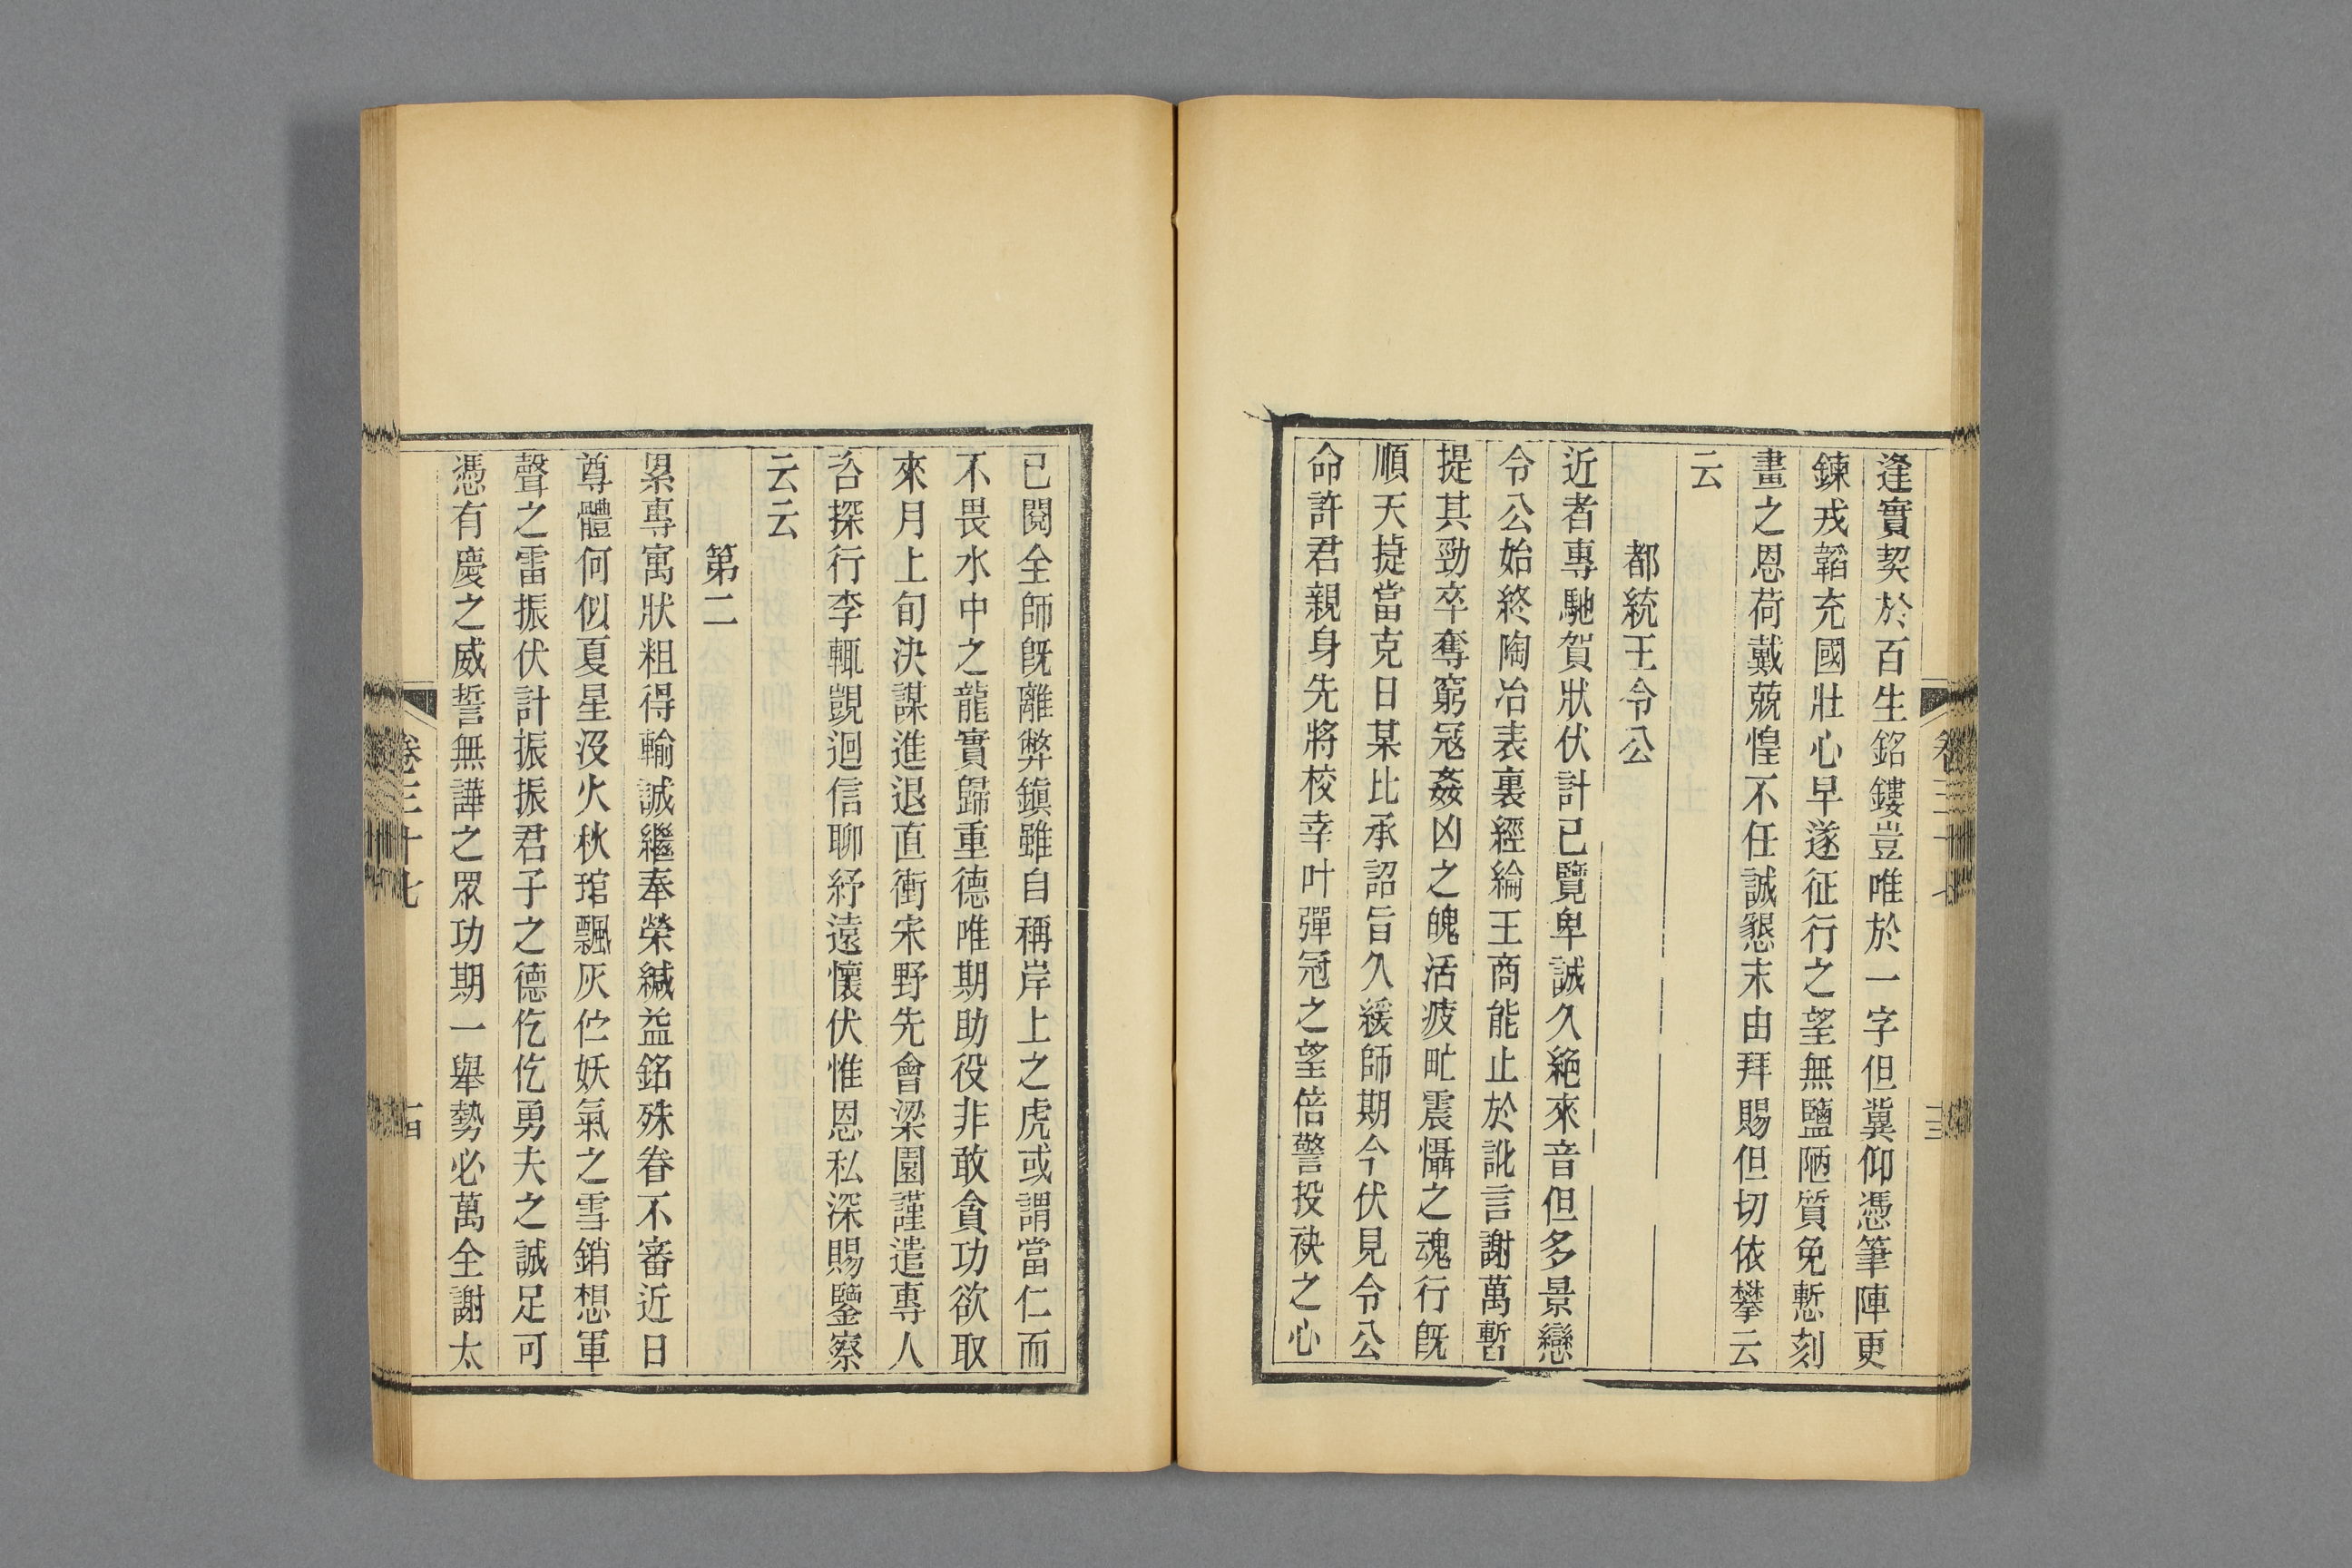 逢實契於百生銘鏤豈唯於一字但冀仰憑筆陣更
鍊戎韜充國壯心早遂征行之望無鹽陋質免慙刻
畫之恩荷戴兢惶不任誠懇末由拜賜但切依攀云
云
都統王令公
近者專馳賀狀伏計已覽卑誠久絶來音但多景戀
令公始終陶冶表裏經綸王商能止於訛言謝萬暫
提其勁卒奪窮冦姦凶之魄活疲甿震懾之魂行旣
順天㨗當克日某比承詔旨久緩師期今伏見令公
命許君親身先將校幸叶彈冠之望倍警投袂之心
卷三十七
十三
已閱全師旣離弊鎭雖自稱岸上之虎或謂當仁而
不畏水中之龍實歸重德唯期助役非敢貪功欲取
來月上旬決謀進退直衝宋野先會梁園謹遣專人
咨探行李輒覬迴信聊紓遠懷伏惟恩私深賜鑒察
云云
第二
累專寓狀粗得輸誠繼奉榮緘益銘殊眷不審近日
尊體何似夏星沒火秋琯飄灰伫妖氣之雪銷想軍
聲之雷振伏計振振君子之德仡仡勇夫之誠足可
憑有慶之威誓無譁之眾功期一舉勢必萬全謝太
卷三十七
十四